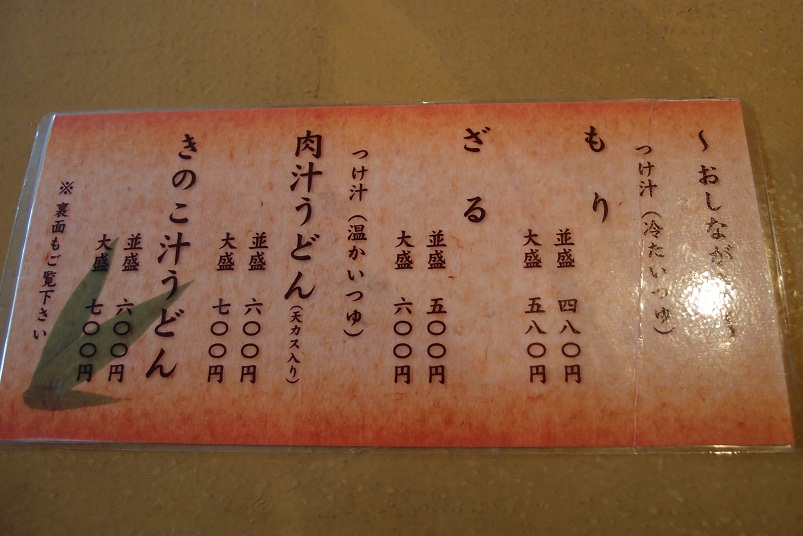 ～おしながき～
つけ汁（冷たいつゆ）
もり
並盛 四八〇円
大盛 五八〇円
ざる
並盛 五〇〇円
大盛 六〇〇円
つけ汁（温かいつゆ）
肉汁うどん（天カス入り）
並盛 六〇〇円
大盛 七〇〇円
きのこ汁うどん
並盛 六〇〇円
大盛 七〇〇円
※裏面もご覧下さい